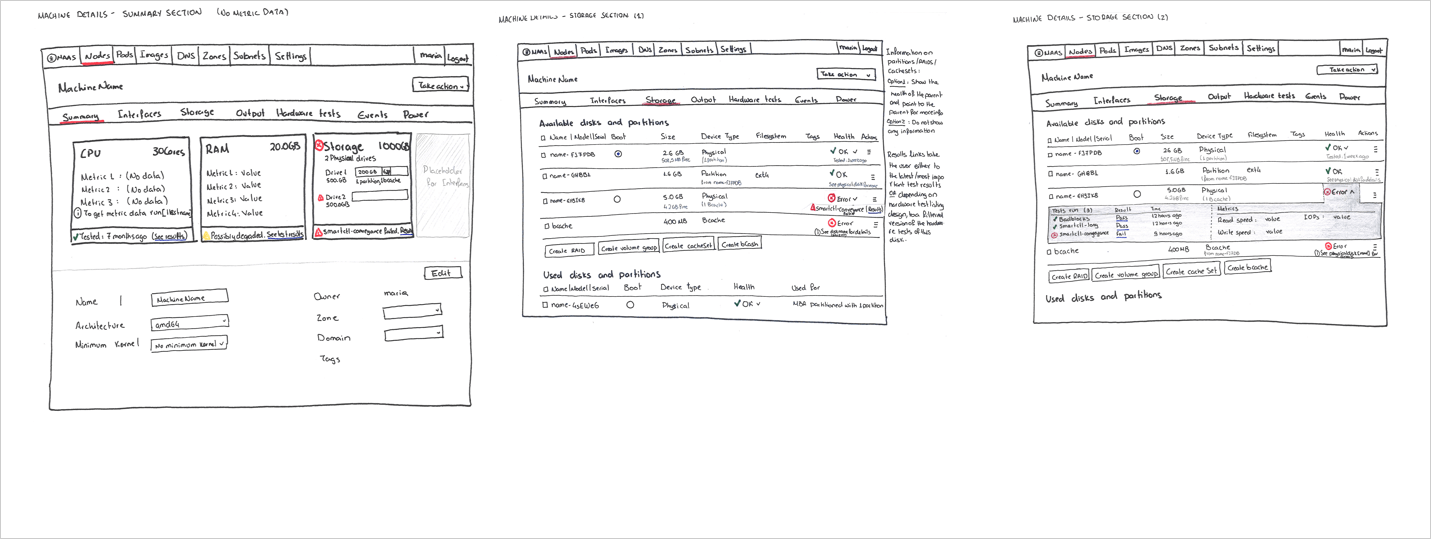 MACHINE DETAILS - SUMMARY SECTION (NO METRIC DATA)
MAAS Nodes Pods Images DNS Zones Subnets Settings maria Logout
Machine Name Take action
Summary Interfaces Storage Output Hardware tests Events Power
CPU 30Cores
Metric 1 : (No data)
Metric 2 : (No data)
Metric 3 : (No data)
To get metric data run
Tested : 7 months ago (See results)
RAM 20.0GB
Metric 1 : Value
Metric 2 : Value
Metric 3 : Value
Metric 4 : Value
Possibly degraded. See test results
Storage 1000GB
2 Physical drives
Drive 1 200GB
500GB 1 partition, 1 bcache
Drive 2
500GB
smartctl-conveyance failed.
Placeholder
For Interfaces
Edit
Name MachineName
Architecture amd64
Minimum Kernel No minimum Kernel
Owner maria
Zone
Domain
Tags
MACHINE DETAILS - STORAGE SECTION (1)
MAAS Nodes Pods Images DNS Zones Subnets Settings maria Logout
Machine Name Take action
Summary Interfaces Storage Output Hardware tests Events Power
Available disks and partitions
Name | Model | Serial Boot Size Device Type Filesystem Tags Health Actions
name-F37PDB 2.6 GB Physical OK
(1 partition) Tested:
1.6 GB Partition ext4 OK
5.0GB Physical Error
4.2GB Free (1 Bcache) smartctl-conveyance (Results)
bcache 400 MB Bcache Error
Create RAID Create volume group Create cacheset Create bcash
Used disks and partitions
Name | Model | Serial Boot Device Type Health Used for
name-GSEWeG Physical OK MBR partitioned with 1 partition
Information on
partitions/RAIDs/
cachesets:
Option 1: Show the
health of the parent
and point to the
parent for more info
Option 2: Do not show
any information
Results links take
the user either to
the latest/most impo
rtant test results
or depending on
hardware test listing
design, to a filtered
version of the hardwa
re tests of this
disk.
MACHINE DETAILS - STORAGE SECTION (2)
MAAS Nodes Pods Images DNS Zones Subnets Settings maria Logout
Machine Name Take action
Summary Interfaces Storage Output Hardware tests Events Power
Available disks and partitions
Name | Model | Serial Boot Size Device Type Filesystem Tags Health Actions
name-F37PDB 2.6 GB Physical OK
(1 partition)
1.6GB Partition ext4 OK
5.0GB Physical Error
4.2GB Free (1 Bcache)
Tests run (3) Result Time Metrics
Badblocks Pass 12 hours ago Read speed : value IOPs : value
Smartctl-long Pass 12 hours ago
Smartctl-conveyance Fail hours ago Write speed : value
bcache 400MB Bcache Error
Create RAID Create volume group Create cache Set Create bcache
Used disks and partitions